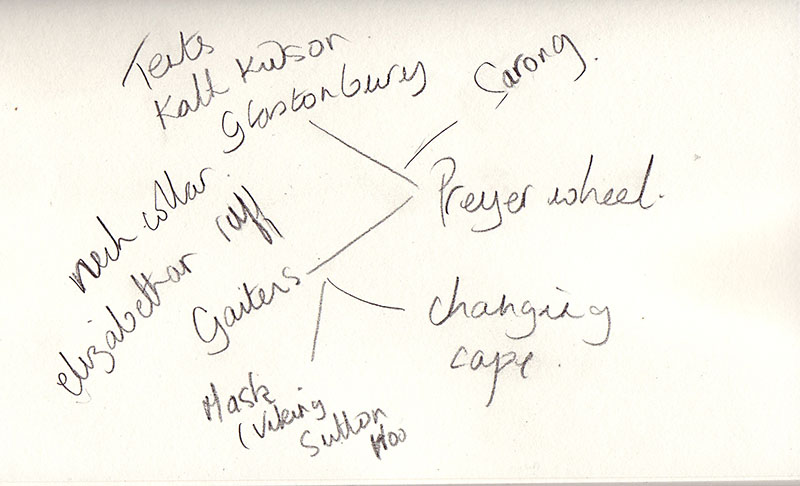 Tents
Kath Kidson
Glastonbury
Sarong.
Preyer wheel.
neck collar.
elizabethan ruff
Gaiters
changing
cape.
Mask
(Viking
Sutton
Hoo